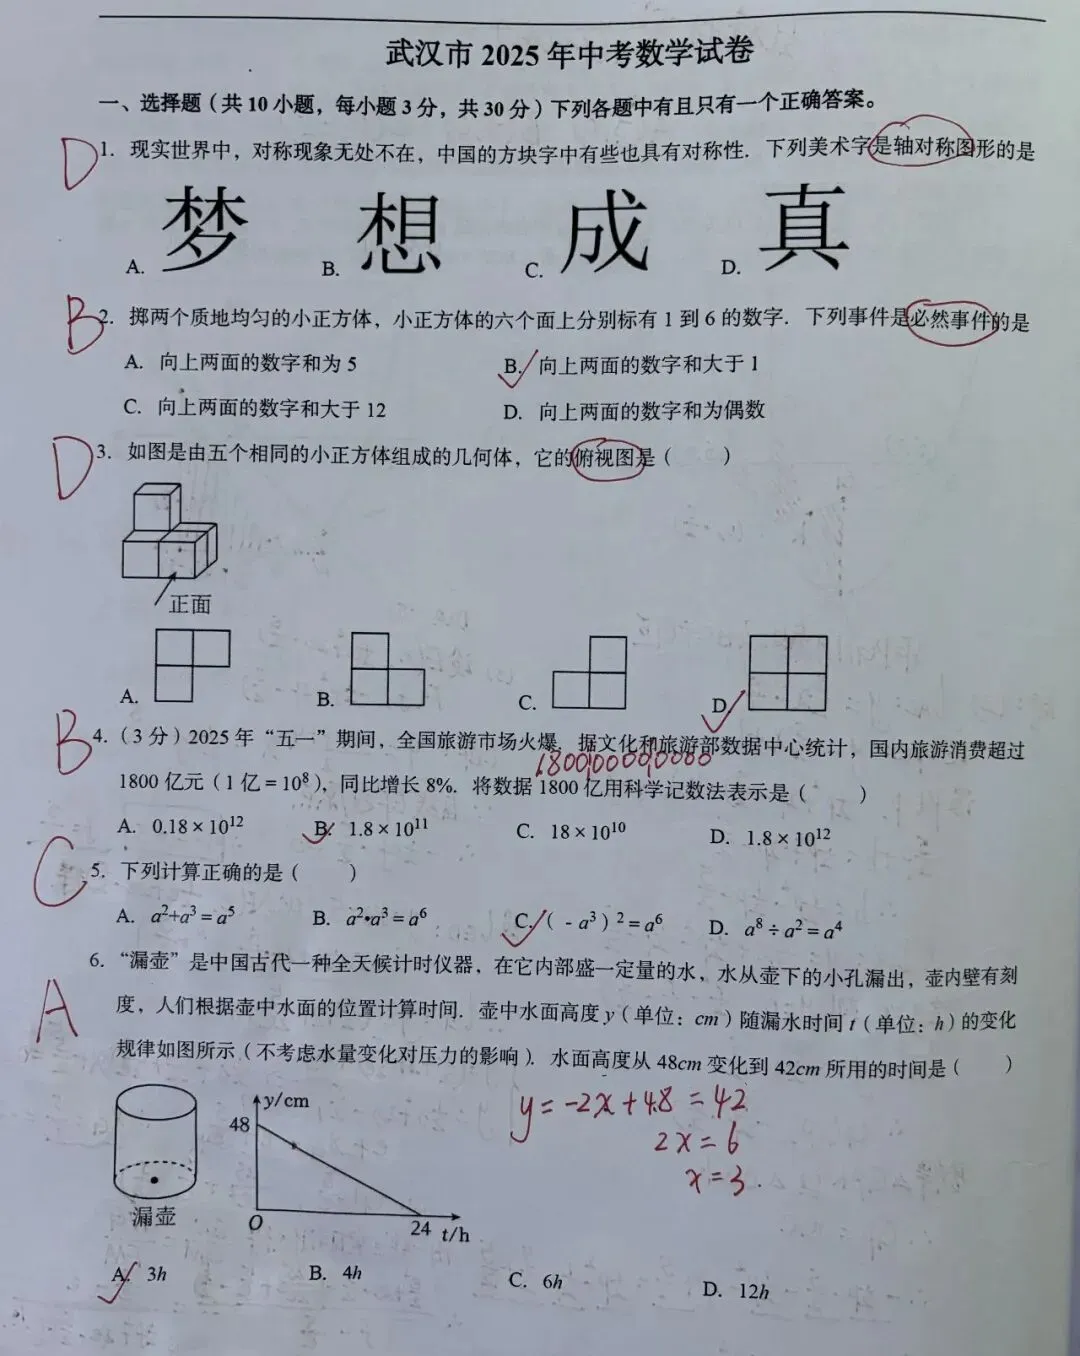 武汉市 2025 年中考数学试卷
一、选择题（共 10 小题，每小题 3 分，共 30 分）下列各题中有且只有一个正确答案。
D 1. 现实世界中，对称现象无处不在，中国的方块字中有些也具有对称性．下列美术字是轴对称图形的是
A. 梦 B. 想 C. 成 D. 真
B 2. 掷两个质地均匀的小正方体，小正方体的六个面上分别标有 1 到 6 的数字．下列事件是必然事件的是
A. 向上两面的数字和为 5 B. 向上两面的数字和大于 1
C. 向上两面的数字和大于 12 D. 向上两面的数字和为偶数
D 3. 如图是由五个相同的小正方体组成的几何体，它的俯视图是（ ）
正面
A. B. C. D.
B 4.（3 分）2025 年“五一”期间，全国旅游市场火爆．据文化和旅游部数据中心统计，国内旅游消费超过
180000000000
1800 亿元（1 亿＝10⁸），同比增长 8%．将数据 1800 亿用科学记数法表示是（ ）
A. 0.18×10¹² B. 1.8×10¹¹ C. 18×10¹⁰ D. 1.8×10¹²
C 5. 下列计算正确的是（ ）
A. a²+a³＝a⁵ B. a²•a³＝a⁶ C.（ - a³）²＝a⁶ D. a⁸÷a²＝a⁴
6. “漏壶”是中国古代一种全天候计时仪器，在它内部盛一定量的水，水从壶下的小孔漏出，壶内壁有刻
A 度，人们根据壶中水面的位置计算时间．壶中水面高度 y（单位：cm）随漏水时间 t（单位：h）的变化
规律如图所示（不考虑水量变化对压力的影响）．水面高度从 48cm 变化到 42cm 所用的时间是（ ）
y/cm
48
O
24
t/h
漏壶
y=-2x+48=42
2x=6
x=3.
A. 3h B. 4h C. 6h D. 12h